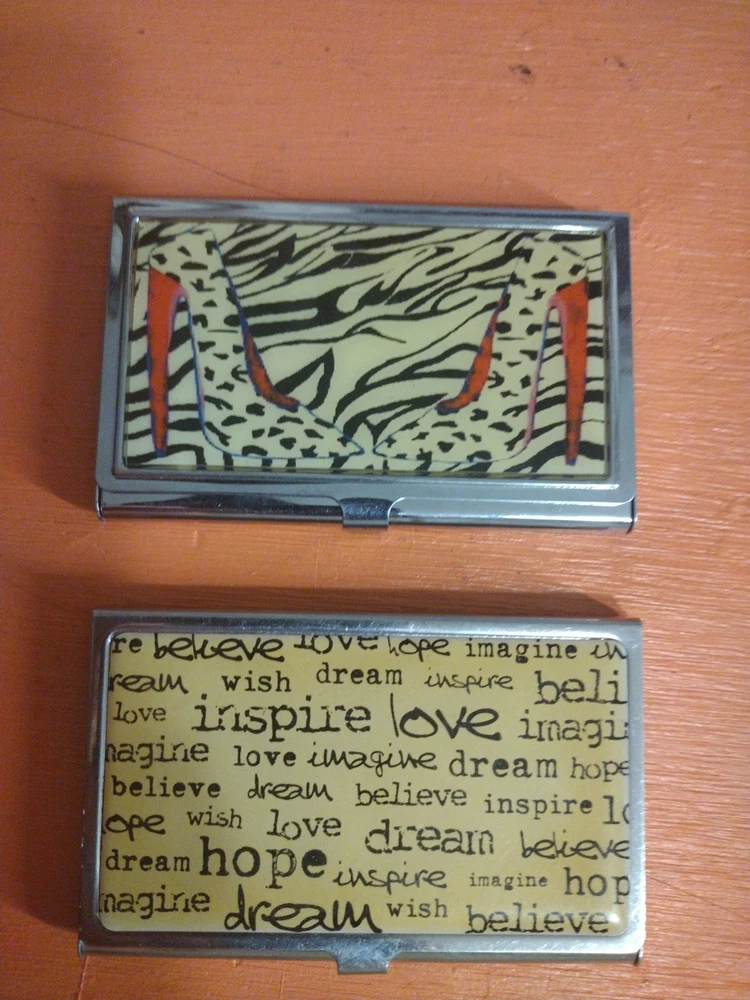 re believe love hope imagine in
ream wish dream inspire beli
love inspire love imagi
magine love imagine dream hope
believe dream believe inspire lo
ope wish love dream believe
dream hope inspire imagine hop
magine dream wish believe